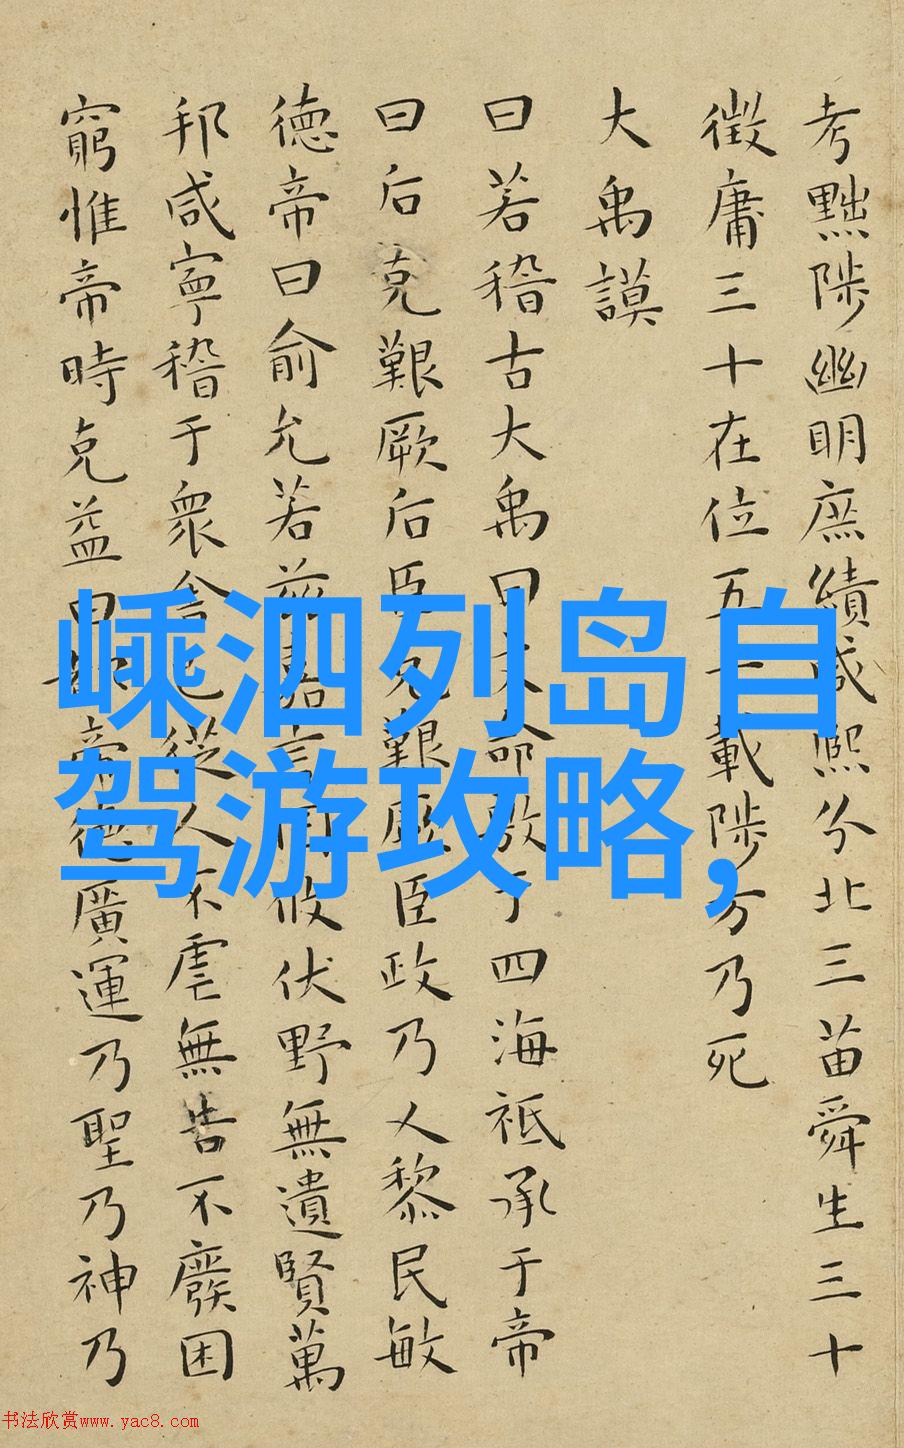 考黜陟幽明庶績咸熙分北三苗舜生三十
徵庸三十在位五十載陟方乃死
大禹謨
曰若稽古大禹曰文命敷于四海祗承于帝
曰后克艱厥后臣克艱厥臣政乃乂黎民敏
德帝曰俞允若茲嘉言罔攸伏野無遺賢萬
邦咸寧稽于眾舍己從人不虐無告不廢困
窮惟帝時克益曰都帝德廣運乃聖乃神乃
嵊泗列岛自
驾游攻略,
书法欣赏www.yac8.com